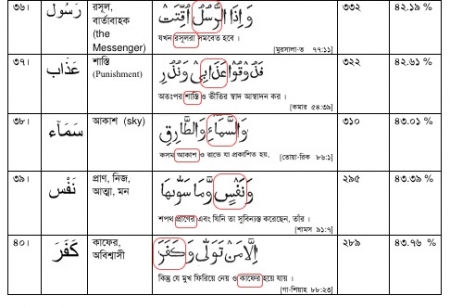 ৩৬। رَسُول রসূল, বার্তাবাহক (the Messenger) وَاِذَا الرُّسُلُ اُقِّتَتْ ৩৩২ ৪২.১৯ %
যখন রসূলরা সমবেত হবে ।
[মুরসালা-ত ৭৭:১১]
৩৭। عَذَاب শাস্তি (Punishment) فَذُوْقُوْا عَذَابِىْ وَنُذُرِ ৩২২ ৪২.৬১ %
অতঃপর শাস্তি ও ভীতির স্বাদ আস্বাদন কর ।
[কমার ৫৪:৩৯]
৩৮। سَمَآء আকাশ (sky) وَالسَّمَآءِ وَالطَّارِقِ ৩১০ ৪৩.০১ %
কসম আকাশ ও রাতে যা প্রকাশিত হয়,
[তোয়া-রিক ৮৬:১]
৩৯। نَفْس প্রাণ, নিজ, আত্মা, মন وَنَفْسٍ وَّمَا سَوّٰىهَا ২৯৫ ৪৩.৩৯ %
শপথ প্রাণের এবং যিনি তা সুবিন্যস্ত করেছেন, তাঁর ।
[শামস ৯১:৭]
৪০। كَفَرَ কাফের, অবিশ্বাসী اِلَّا مَنْ تَوَلّٰى وَكَفَرَ ২৮৯ ৪৩.৭৬ %
কিন্তু যে মুখ ফিরিয়ে নেয় ও কাফের হয়ে যায় ।
[গা-শিয়াহ ৮৮:২৩]